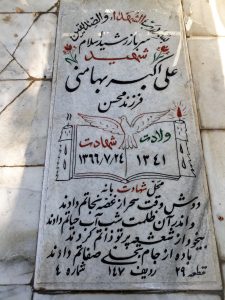 سرباز رشید اسلام
شهید
علی اکبر بهامنی
فرزند محسن
ولادت
شهادت
۱۳۴۱
۱۳۶۶/۷/۲۴
محل شهادت بانه
دوش وقت سحر از غصه نجاتم دادند
واندر آن ظلمت شب آب حیاتم دادند
بیخود از شعشعه پرتو ذاتم کردند
باده از جام تجلی صفاتم دادند
قطعه ۲۹ ردیف ۱۴۷ شماره ۴